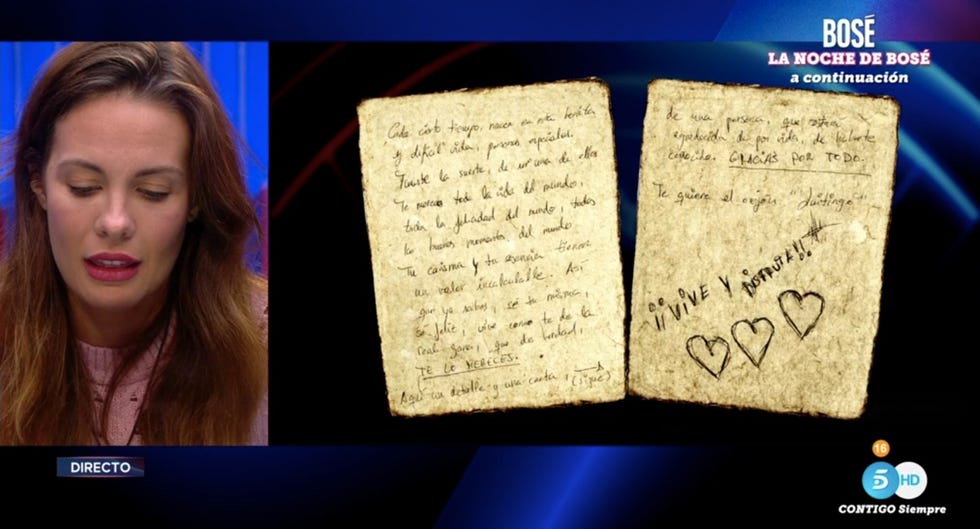 BOSÉ
LA NOCHE DE BOSÉ
a continuación
Cada cierto tiempo, nacen en esta bonita
y difícil vida, personas especiales.
Tuviste la suerte, de ser una de ellas
Te mereces toda la vida del mundo,
toda la felicidad del mundo, todos
los buenos momentos del mundo
Tu carisma y tu esencia tienen
un valor incalculable. Así
que ya sabes, sé tu misma,
sé feliz, vive como te de la
real gana, que de verdad,
TE LO MERECES.
Aquí un detalle y una carta, (sigue)
de una persona, que estará
agradecida de por vida, de haberte
conocido. GRACIAS POR TODO.
Te quiere el orejón
¡¡VIVE Y DISFRUTA!!
DIRECTO
16
5 HD
CONTIGO Siempre